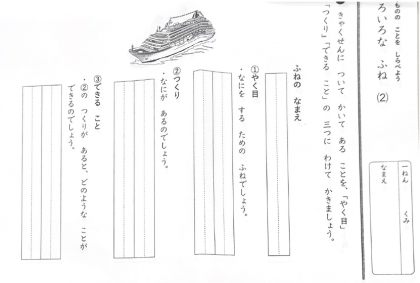 ものの ことを しらべよう
ろいろな ふね (2)
一ねん くみ
なまえ
きゃくせんに ついて かいて ある ことを、「やく目」
「つくり」「できる こと」の 三つに わけて かきましょう。
ふねの なまえ
①やく目
・なにを する ための ふねでしょう。
②つくり
・なにが あるのでしょう。
③できる こと
・②の つくりが あると、どのような ことが
できるのでしょう。